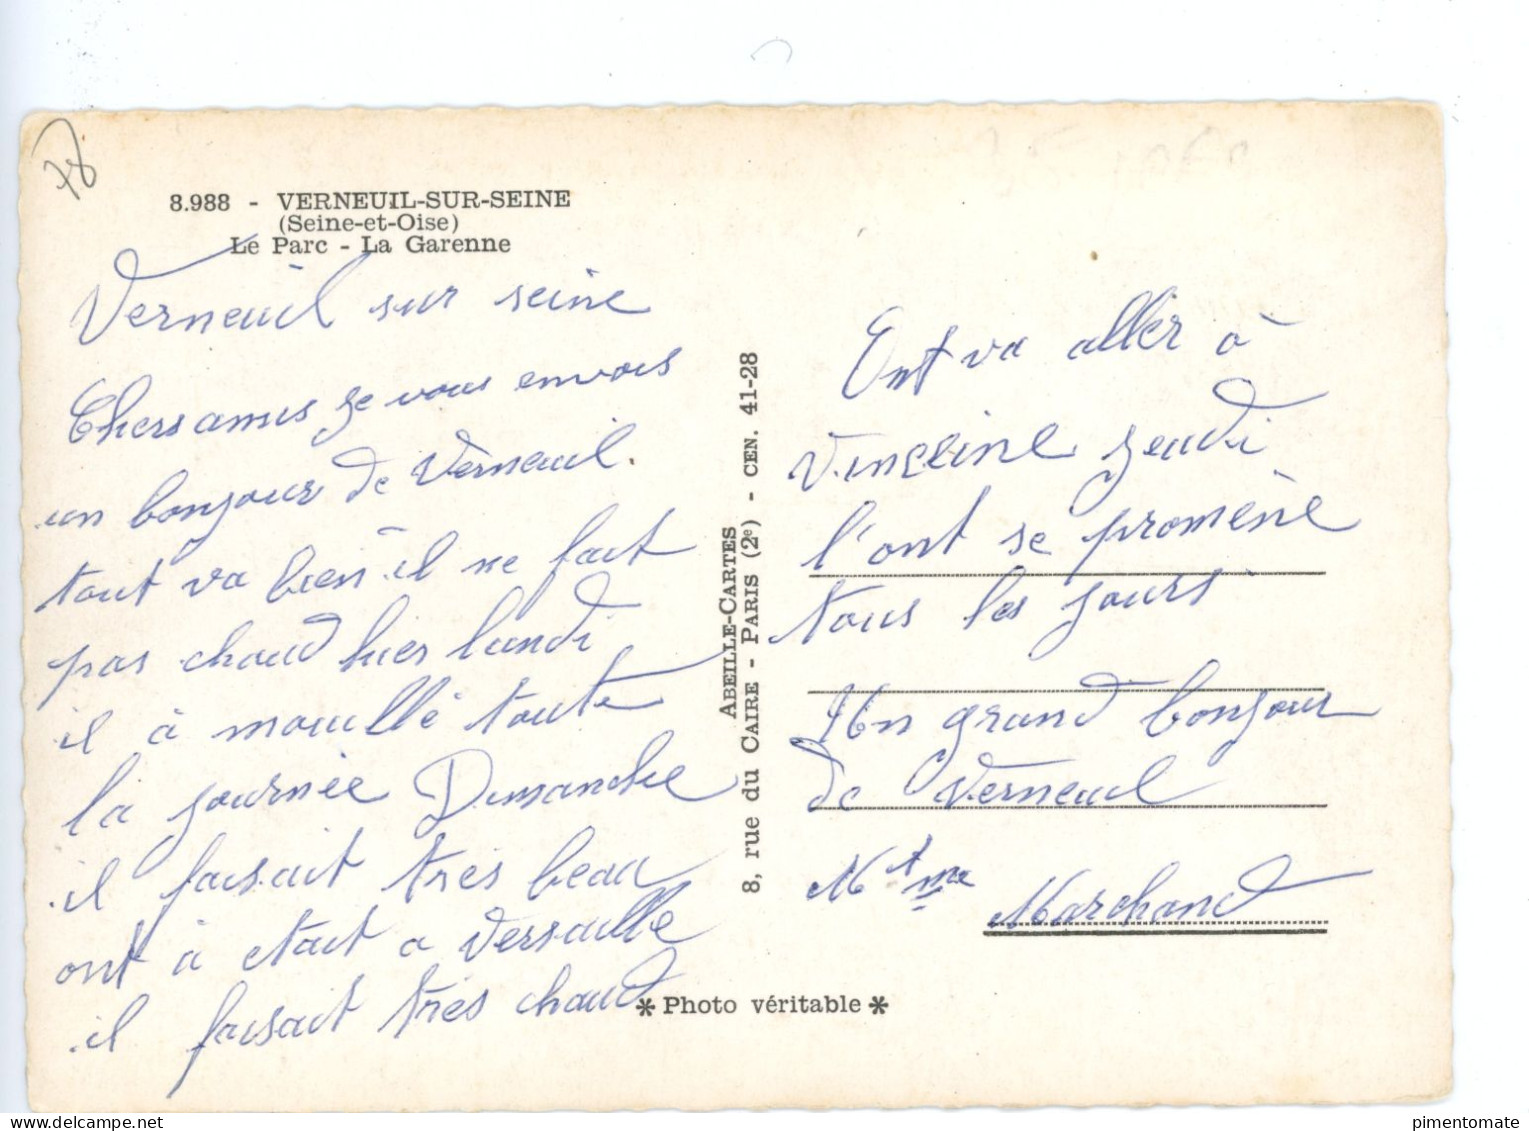 78
8.988 - VERNEUIL-SUR-SEINE
(Seine-et-Oise)
Le Parc - La Garenne
Verneuil sur seine
Chers amis je vous envois
un bonjour de Verneuil.
tout va bien il ne fait
pas chaud hier lundi
il à mouillé toute
la journée Dimanche
il faisait très beau
ont à etait a Versaille
il faisait très chaud
ABEILLE-CARTES
8, rue du CAIRE - PARIS (2e) - CEN. 41-28
Ont va aller à
Vinceine jeudi
l'ont se promène
tous les jours
Un grand bonjour
de Verneuil
M et me
Marchand
* Photo véritable *
delcampe.net
pimentomate